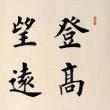 登高
望遠